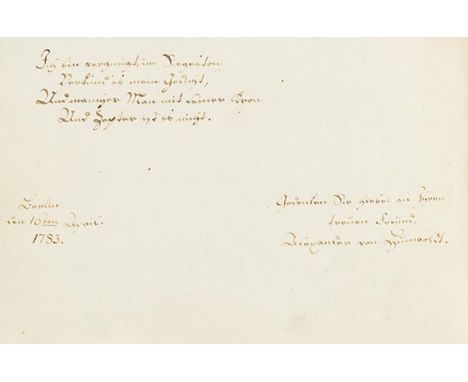 Ich bin vergnügt im Siegeston
Verkünd es mein Gedicht,
Und mancher Man mit seiner Kron
Und Zepter ist es nicht.
Berlin
den 16ten April.
1783.
Gedenken Sie hiebei an Ihren
treuen Freund,
Alexander von Humboldt.